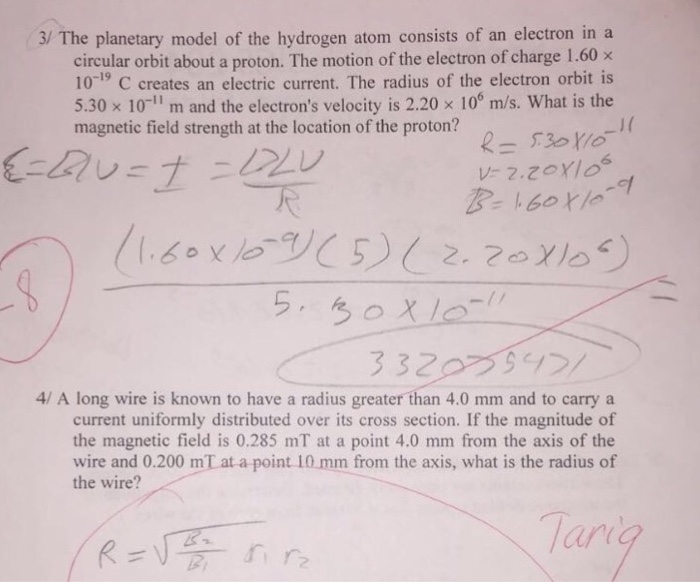 3/ The planetary model of the hydrogen atom consists of an electron in a
circular orbit about a proton. The motion of the electron of charge 1.60 ×
10⁻¹⁹ C creates an electric current. The radius of the electron orbit is
5.30 × 10⁻¹¹ m and the electron's velocity is 2.20 × 10⁶ m/s. What is the
magnetic field strength at the location of the proton?
R = 5.30X10⁻¹¹
V = 2.20X10⁶
B = 1.60X10⁻⁹
ε = BLV = I = BLV / R
(1.60x10⁻⁹)(5)(2.20X10⁶) =
5.30X10⁻¹¹
-8
4/ A long wire is known to have a radius greater than 4.0 mm and to carry a
current uniformly distributed over its cross section. If the magnitude of
the magnetic field is 0.285 mT at a point 4.0 mm from the axis of the
wire and 0.200 mT at a point 10 mm from the axis, what is the radius of
the wire?
R = √B₂/B₁ r₁ r₂
Tariq